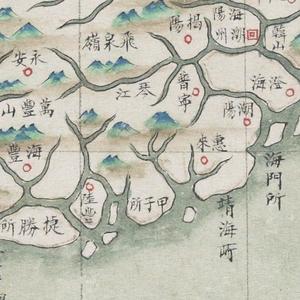 韓山
海陽
潮州
揭陽
飛泉嶺
永安
澄海
普寧
琴江
萬豊山
潮陽
惠來
海豊
海門所
甲子所
陸豊
靖海所
捷勝所